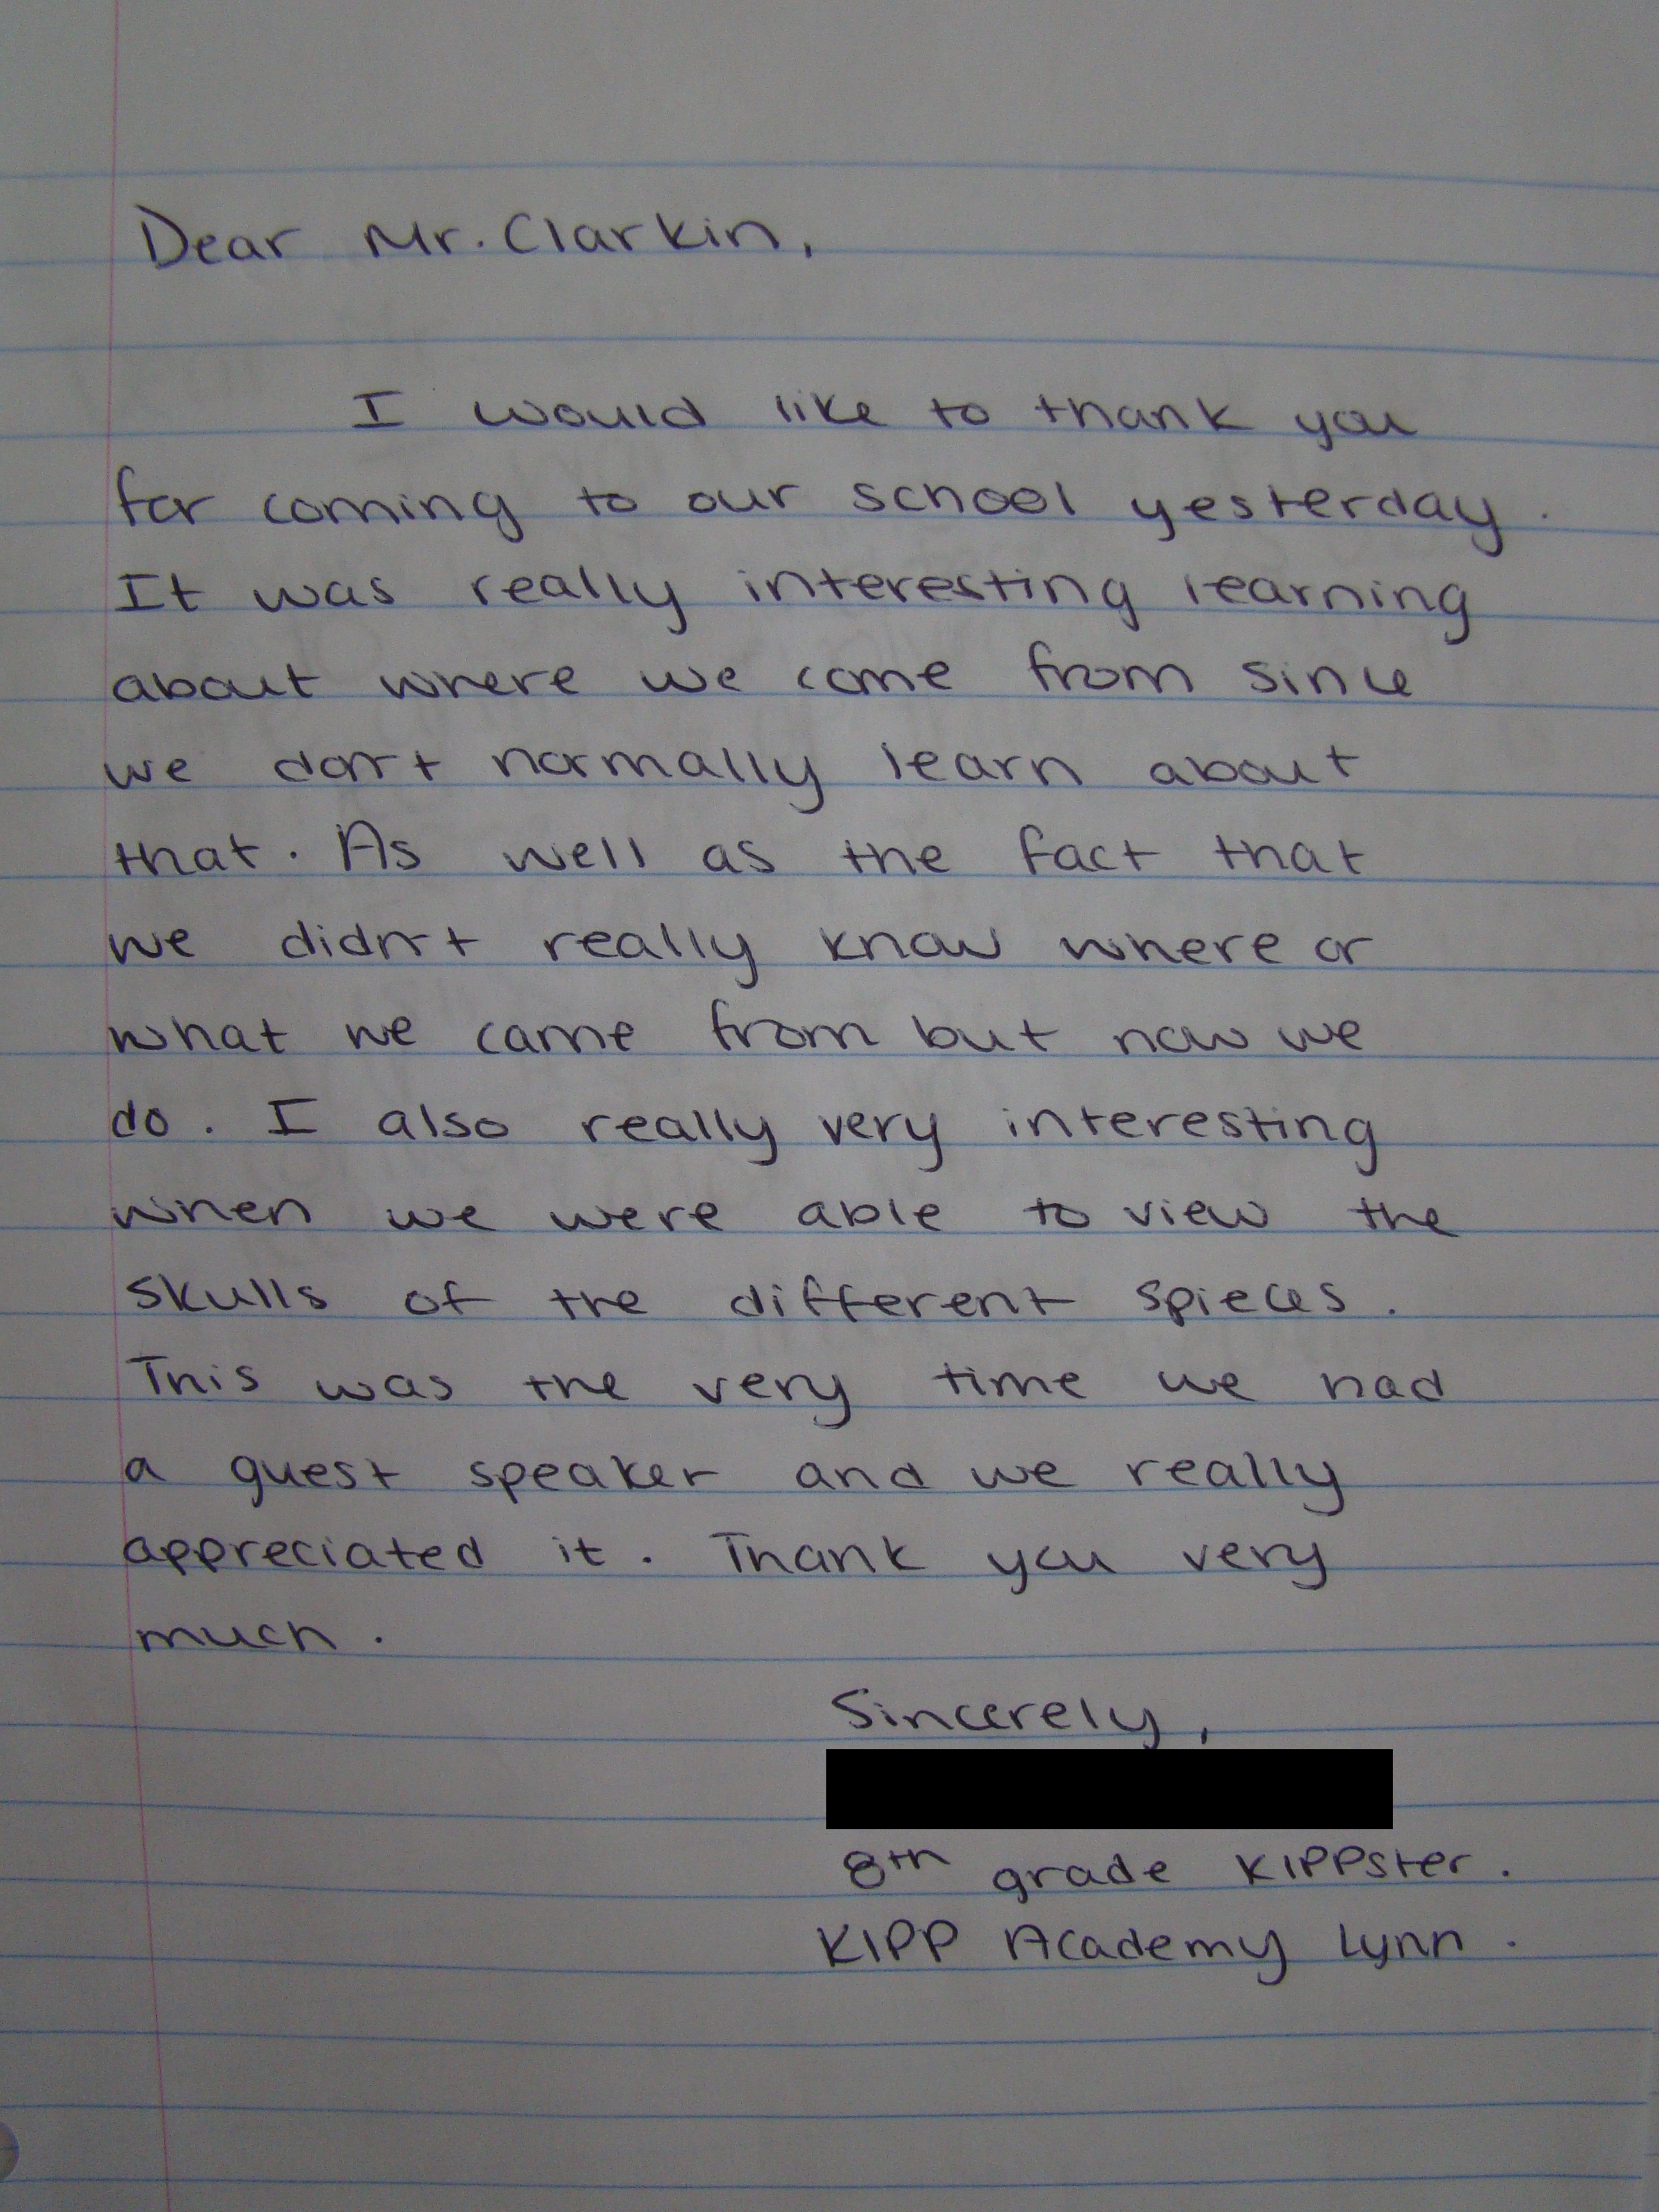 Dear Mr. Clarkin,
I would like to thank you
for coming to our school yesterday.
It was really interesting learning
about where we come from since
we don't normally learn about
that. As well as the fact that
we didn't really know where or
what we came from but now we
do. I also really very interesting
when we were able to view the
skulls of the different spieces.
This was the very time we had
a guest speaker and we really
appreciated it. Thank you very
much.
Sincerely,
8th grade KIPPster.
KIPP Academy Lynn.